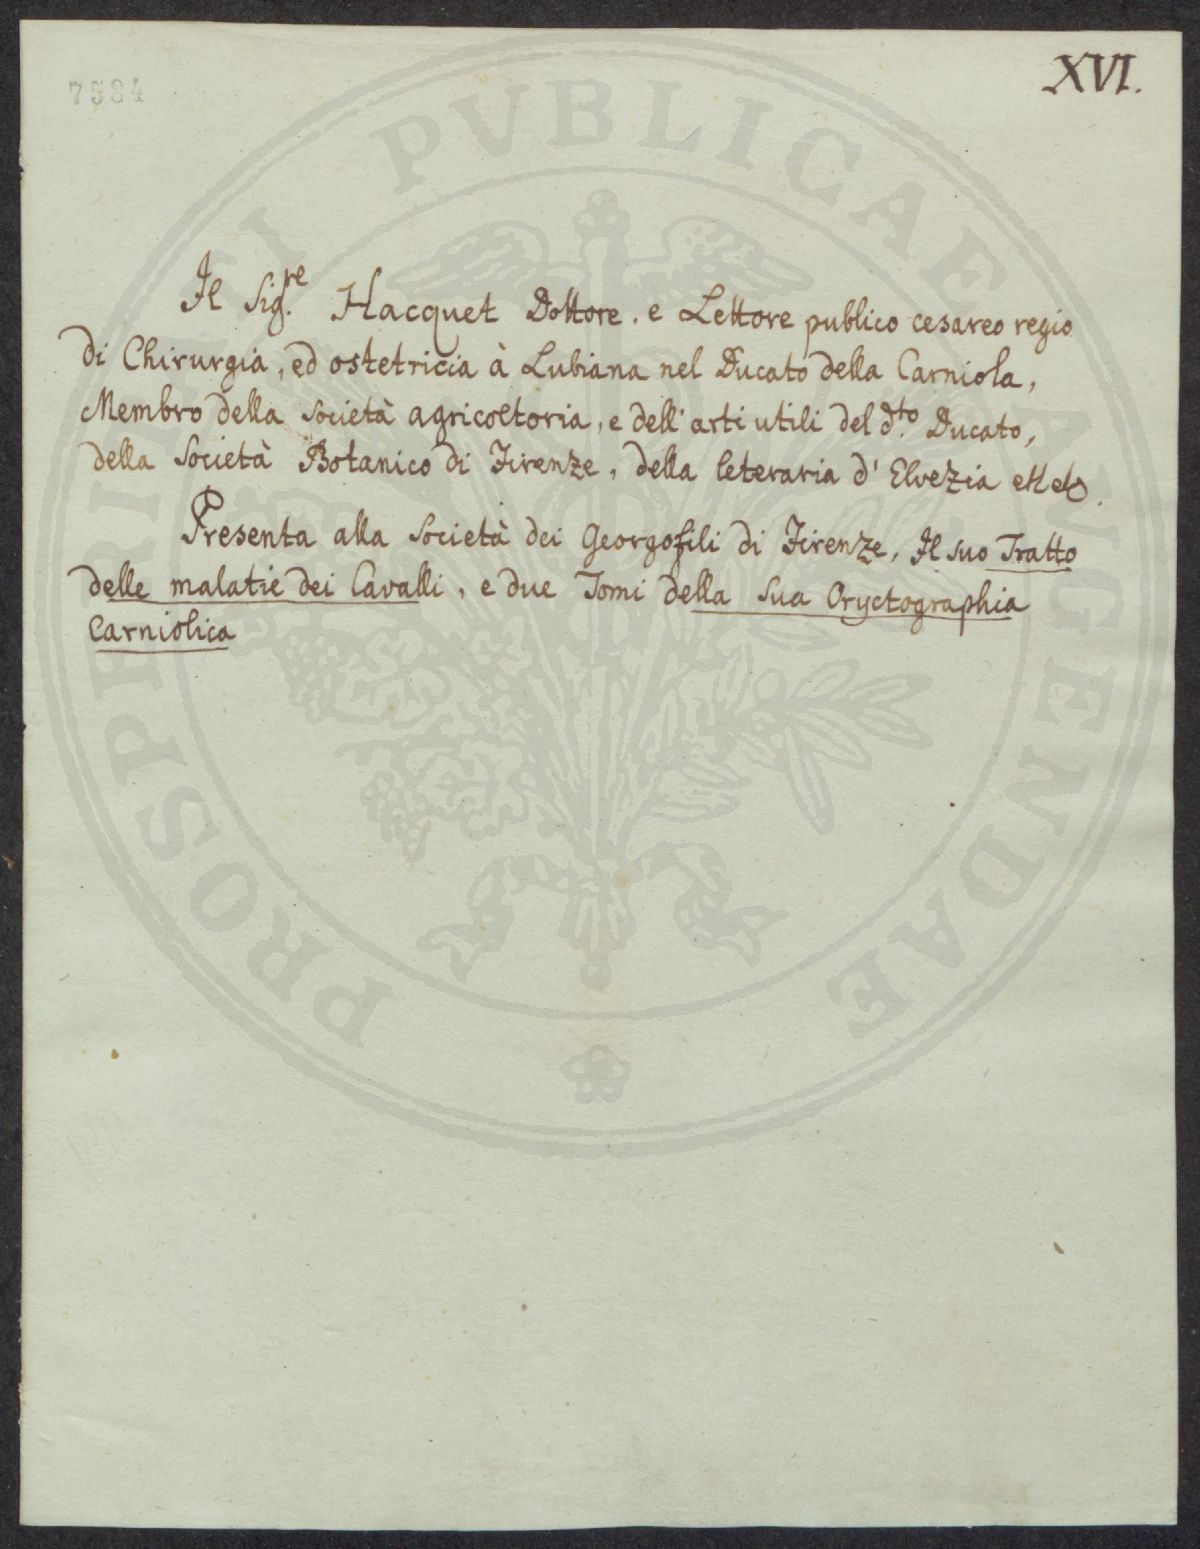 7584
XVI.
Il Sig.re Hacquet Dottore. e Lettore publico cesareo regio
di Chirurgia, ed ostetricia à Lubiana nel Ducato della Carniola,
Membro della Società agricoltoria, e dell'arti utili del d.to Ducato,
della Società Botanico di Firenze, della leteraria d'Elvezia
Presenta alla Società dei Georgofili di Firenze, Il suo Tratto
delle malatie dei Cavalli, e due Tomi della sua Oryctographia
Carniolica
PROSPERITATI PVBLICAE AVGENDAE